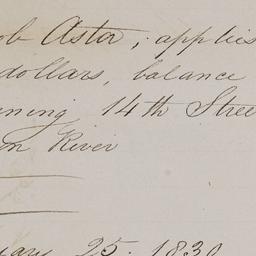 ob Astor, applis
dollars, balance
ning 14th Stree
n River
uary 25. 1830